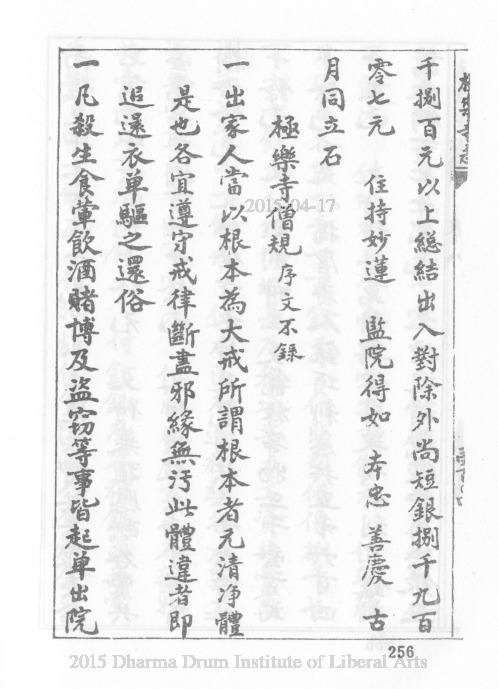 千捌百元以上總結出入對除外尚短銀捌千九百
零七元　住持妙蓮　監院得如　本忠　善慶　古
月同立石
極樂寺僧規序文不錄
一出家人當以根本為大戒所謂根本者元清净體
是也各宜遵守戒律斷盡邪緣無污此體違者即
追還衣单驅之還俗
一凡殺生食葷飲酒賭博及盜窃等事皆起单出院
256
2015-04-17
2015 Dharma Drum Institute of Liberal Arts